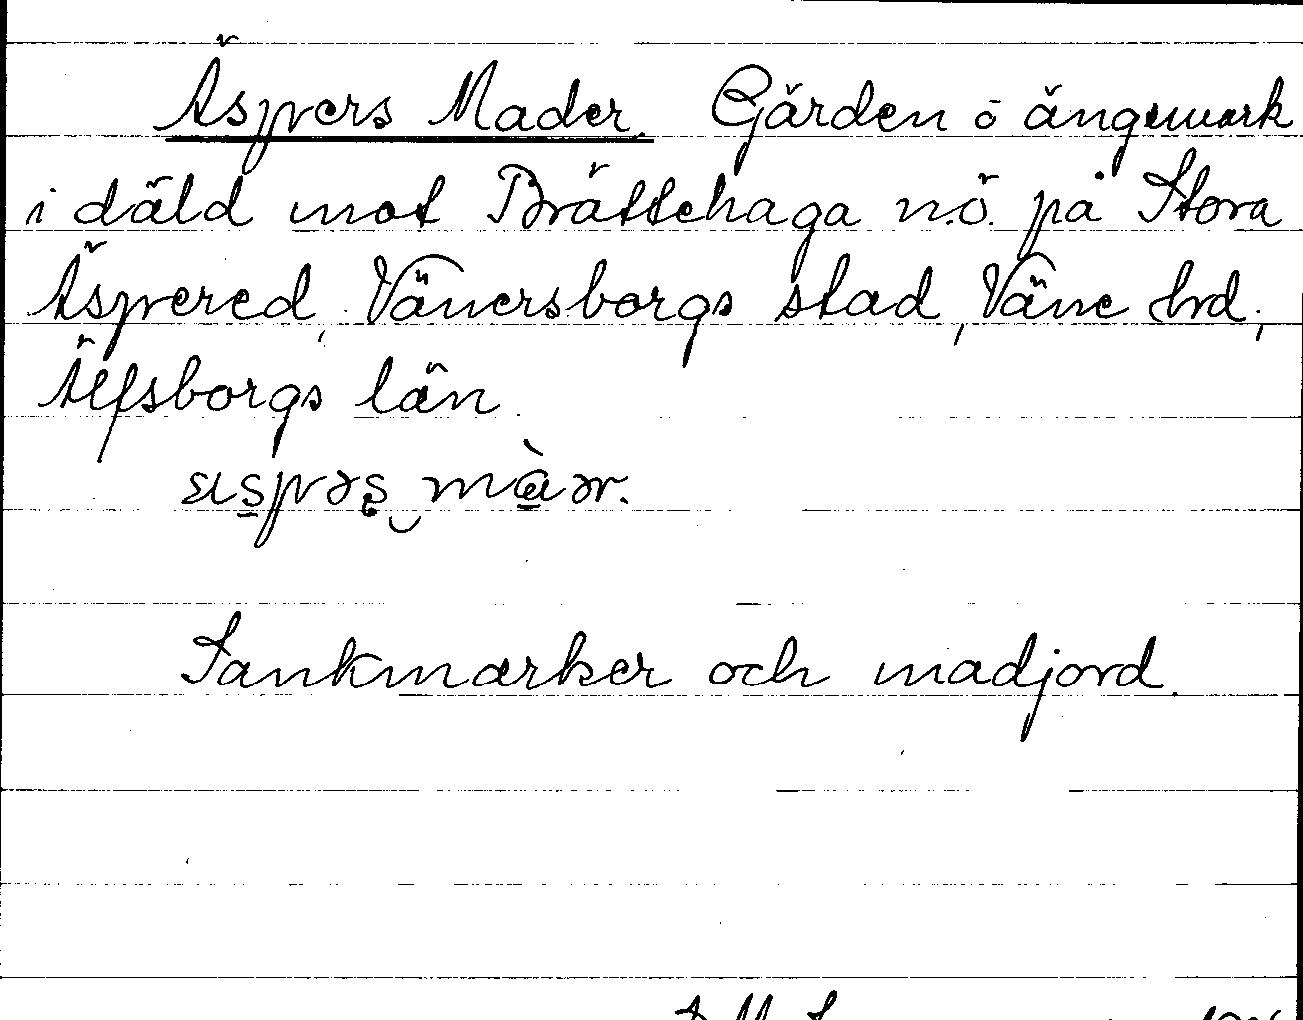 Äspers Mader. Gärden o ängsmark
i däld mot Brättehaga n.ö. på Stora
Äspered, Vänersborgs stad, Väne hrd,
Älfsborgs län.
Sankmarker och madjord.